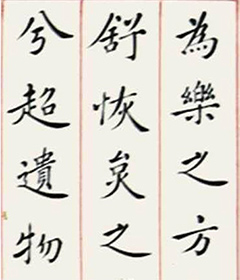 為樂之方
舒恢炱之
兮超遺物